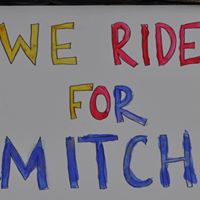 WE RIDE
FOR
MITCH